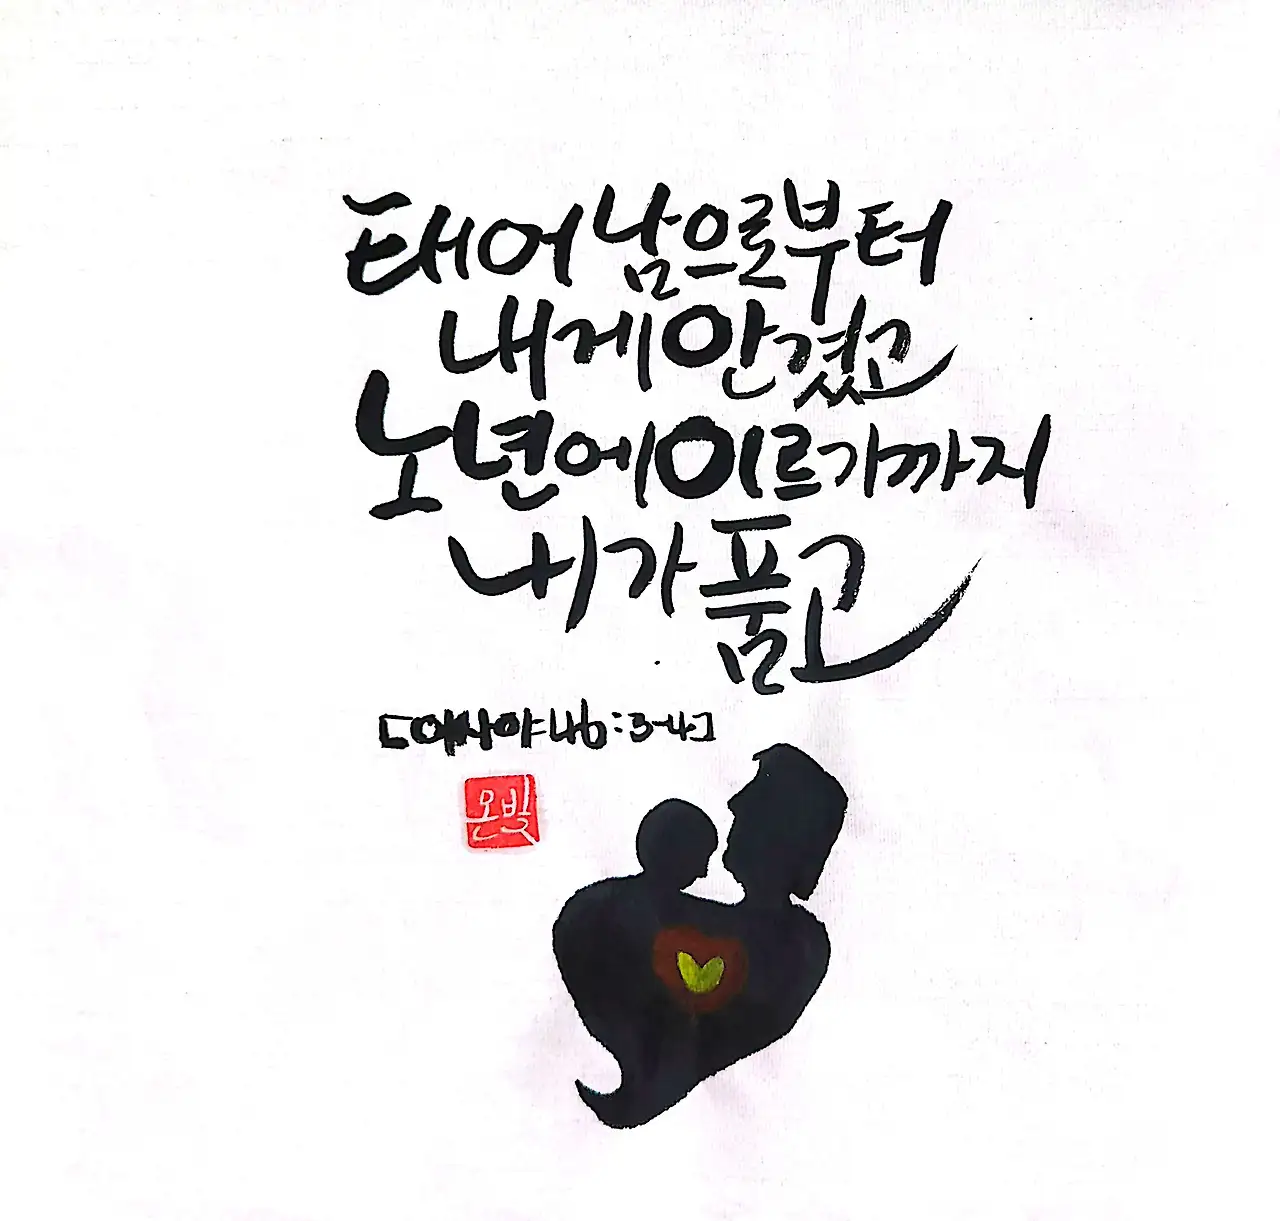 태어남으로부터
내게 안겼고
노년에 이르기까지
내가 품고
[이사야 46:3-4]
온빛